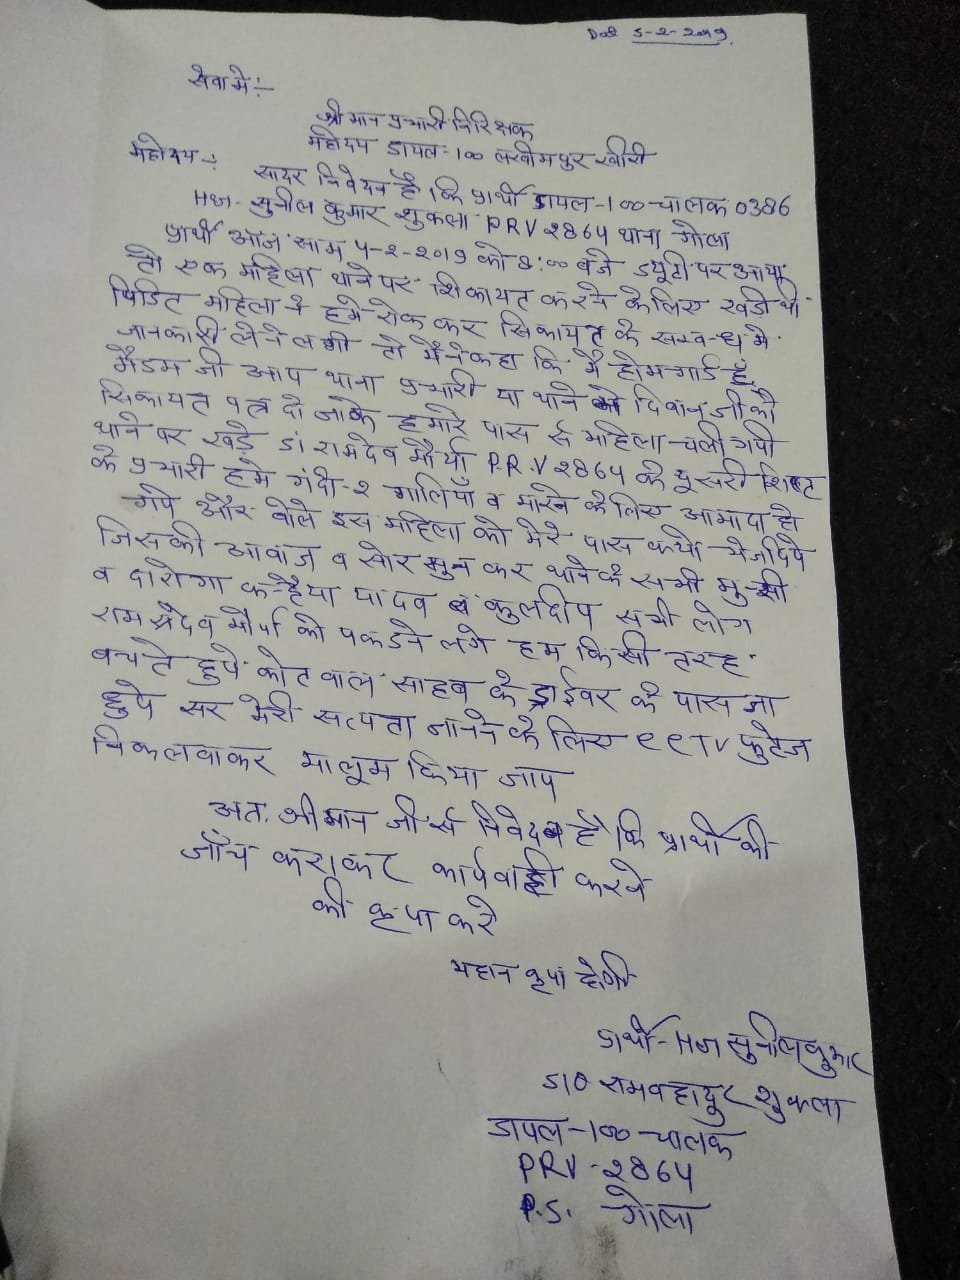 Dat 5-2-2019
सेवा मे :-
श्री मान प्रभारी निरिक्षक
महोदय डायल-100 लखीमपुर खीरी
महोदय :-
सादर निवेदन है कि प्रार्थी डायल-100-चालक 0386
HG. सुनील कुमार शुक्ला PRV 2864 थाना गोला
प्रार्थी आज साम 4-2-2019 को 8:00 बजे ड्यूटी पर आया
तो एक महिला थाने पर शिकायत करने के लिए खड़ी थी
पिडित महिला ने हमे रोक कर सिकायत के सम्बन्ध मे
जानकारी लेने लगी तो मैने कहा कि मै होमगार्ड हूँ
मैडम जी आप थाना प्रभारी या थाने के दिवान जी को
सिकायत पत्र दो जाके हमारे पास से महिला चली गयी
थाने पर खडे डा रामदेव मौर्या P.R.V 2864 के दूसरी शिफ्ट
के प्रभारी हमे गंदी-2 गालियाँ व मारने के लिए आमादा हो
गये और बोले इस महिला को मेरे पास कयो भेज दिये
जिसकी आवाज व सोर सुन कर थाने के सभी मुन्सी
व दारोगा कन्हैया यादव व कुलदीप सभी लोग
राम देव मौर्या को पकडने लगे हम किसी तरह
बचते हुये कोटवाल साहब के ड्राईवर के पास जा
हुये सर मेरी सत्यता जानने के लिए CCTV फुटेज
निकलवाकर मालूम किया जाय
अत. श्री मान जी से निवेदन है कि प्रार्थी की
जाँच कराकर कार्यवाही करने
की कृपा करे
महान कृपा होगी
प्रार्थी - HG सुनील कुमार
S/O रामबहादुर शुक्ला
डायल-100-चालक
PRV-2864
P.S. गोला